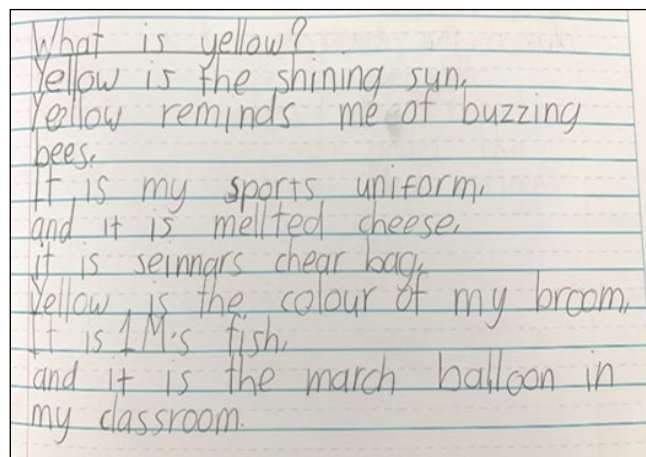 What is yellow?
Yellow is the shining sun,
Yellow reminds me of buzzing
bees.
It is my sports uniform,
and it is mellted cheese,
it is seinnars chear bag,
Yellow is the colour of my broom,
It is 1M's fish,
and it is the march balloon in
my classroom.